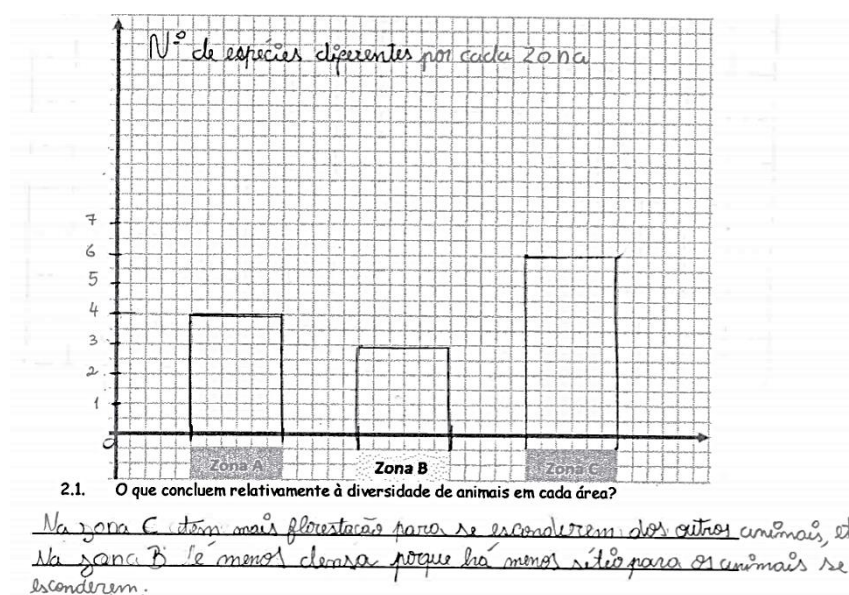 Nº de espécies diferentes por cada zona
7
6
5
4
3
2
1
0
Zona A Zona B Zona C
2.1. O que concluem relativamente à diversidade de animais em cada área?
Na zona C têm mais florestação para se esconderem dos outros animais, e
Na zona B é menos densa porque há menos sítio para os animais se
esconderem.